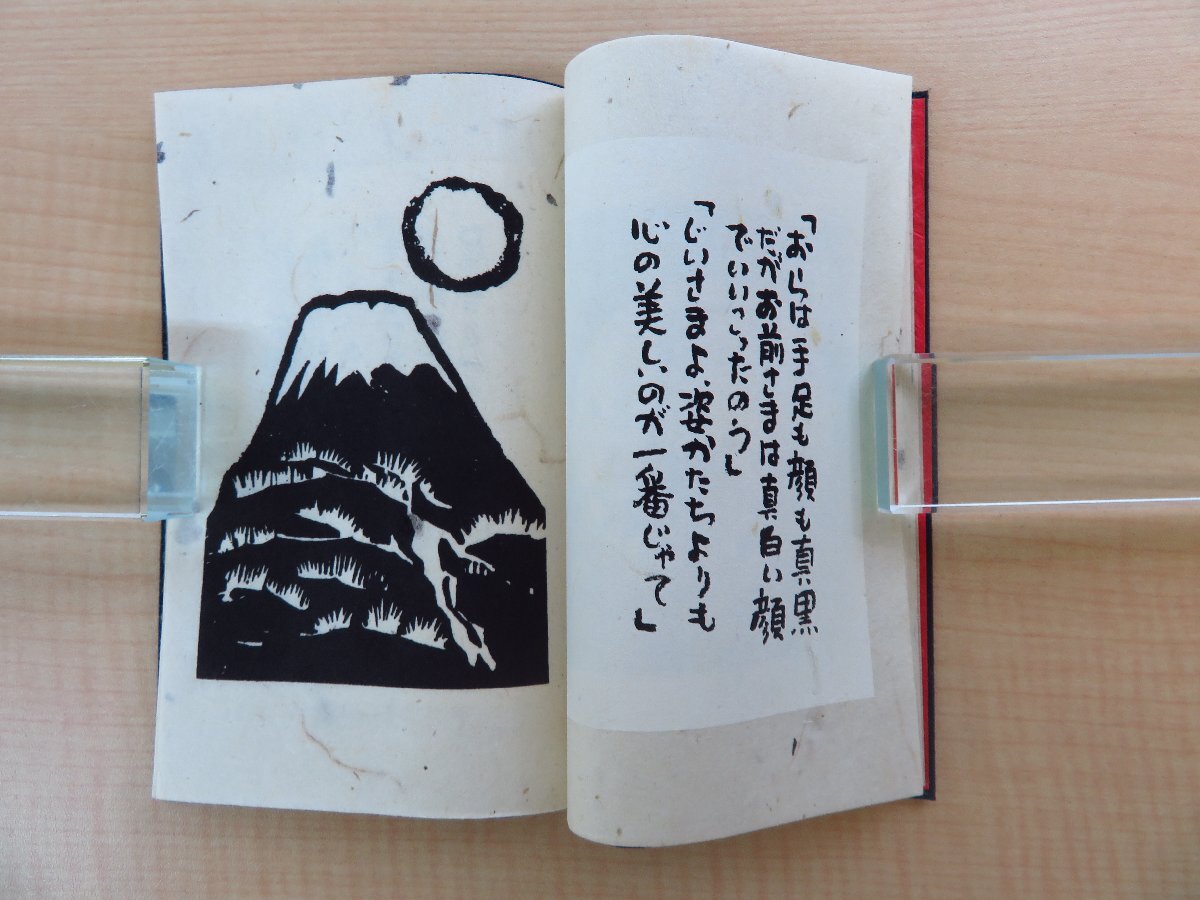 「おらは手足も顔も真黒
だがお前さまは真白い顔
でいいこったのう」
「じいさまよ、姿かたちよりも
心の美しいのが一番じゃて」